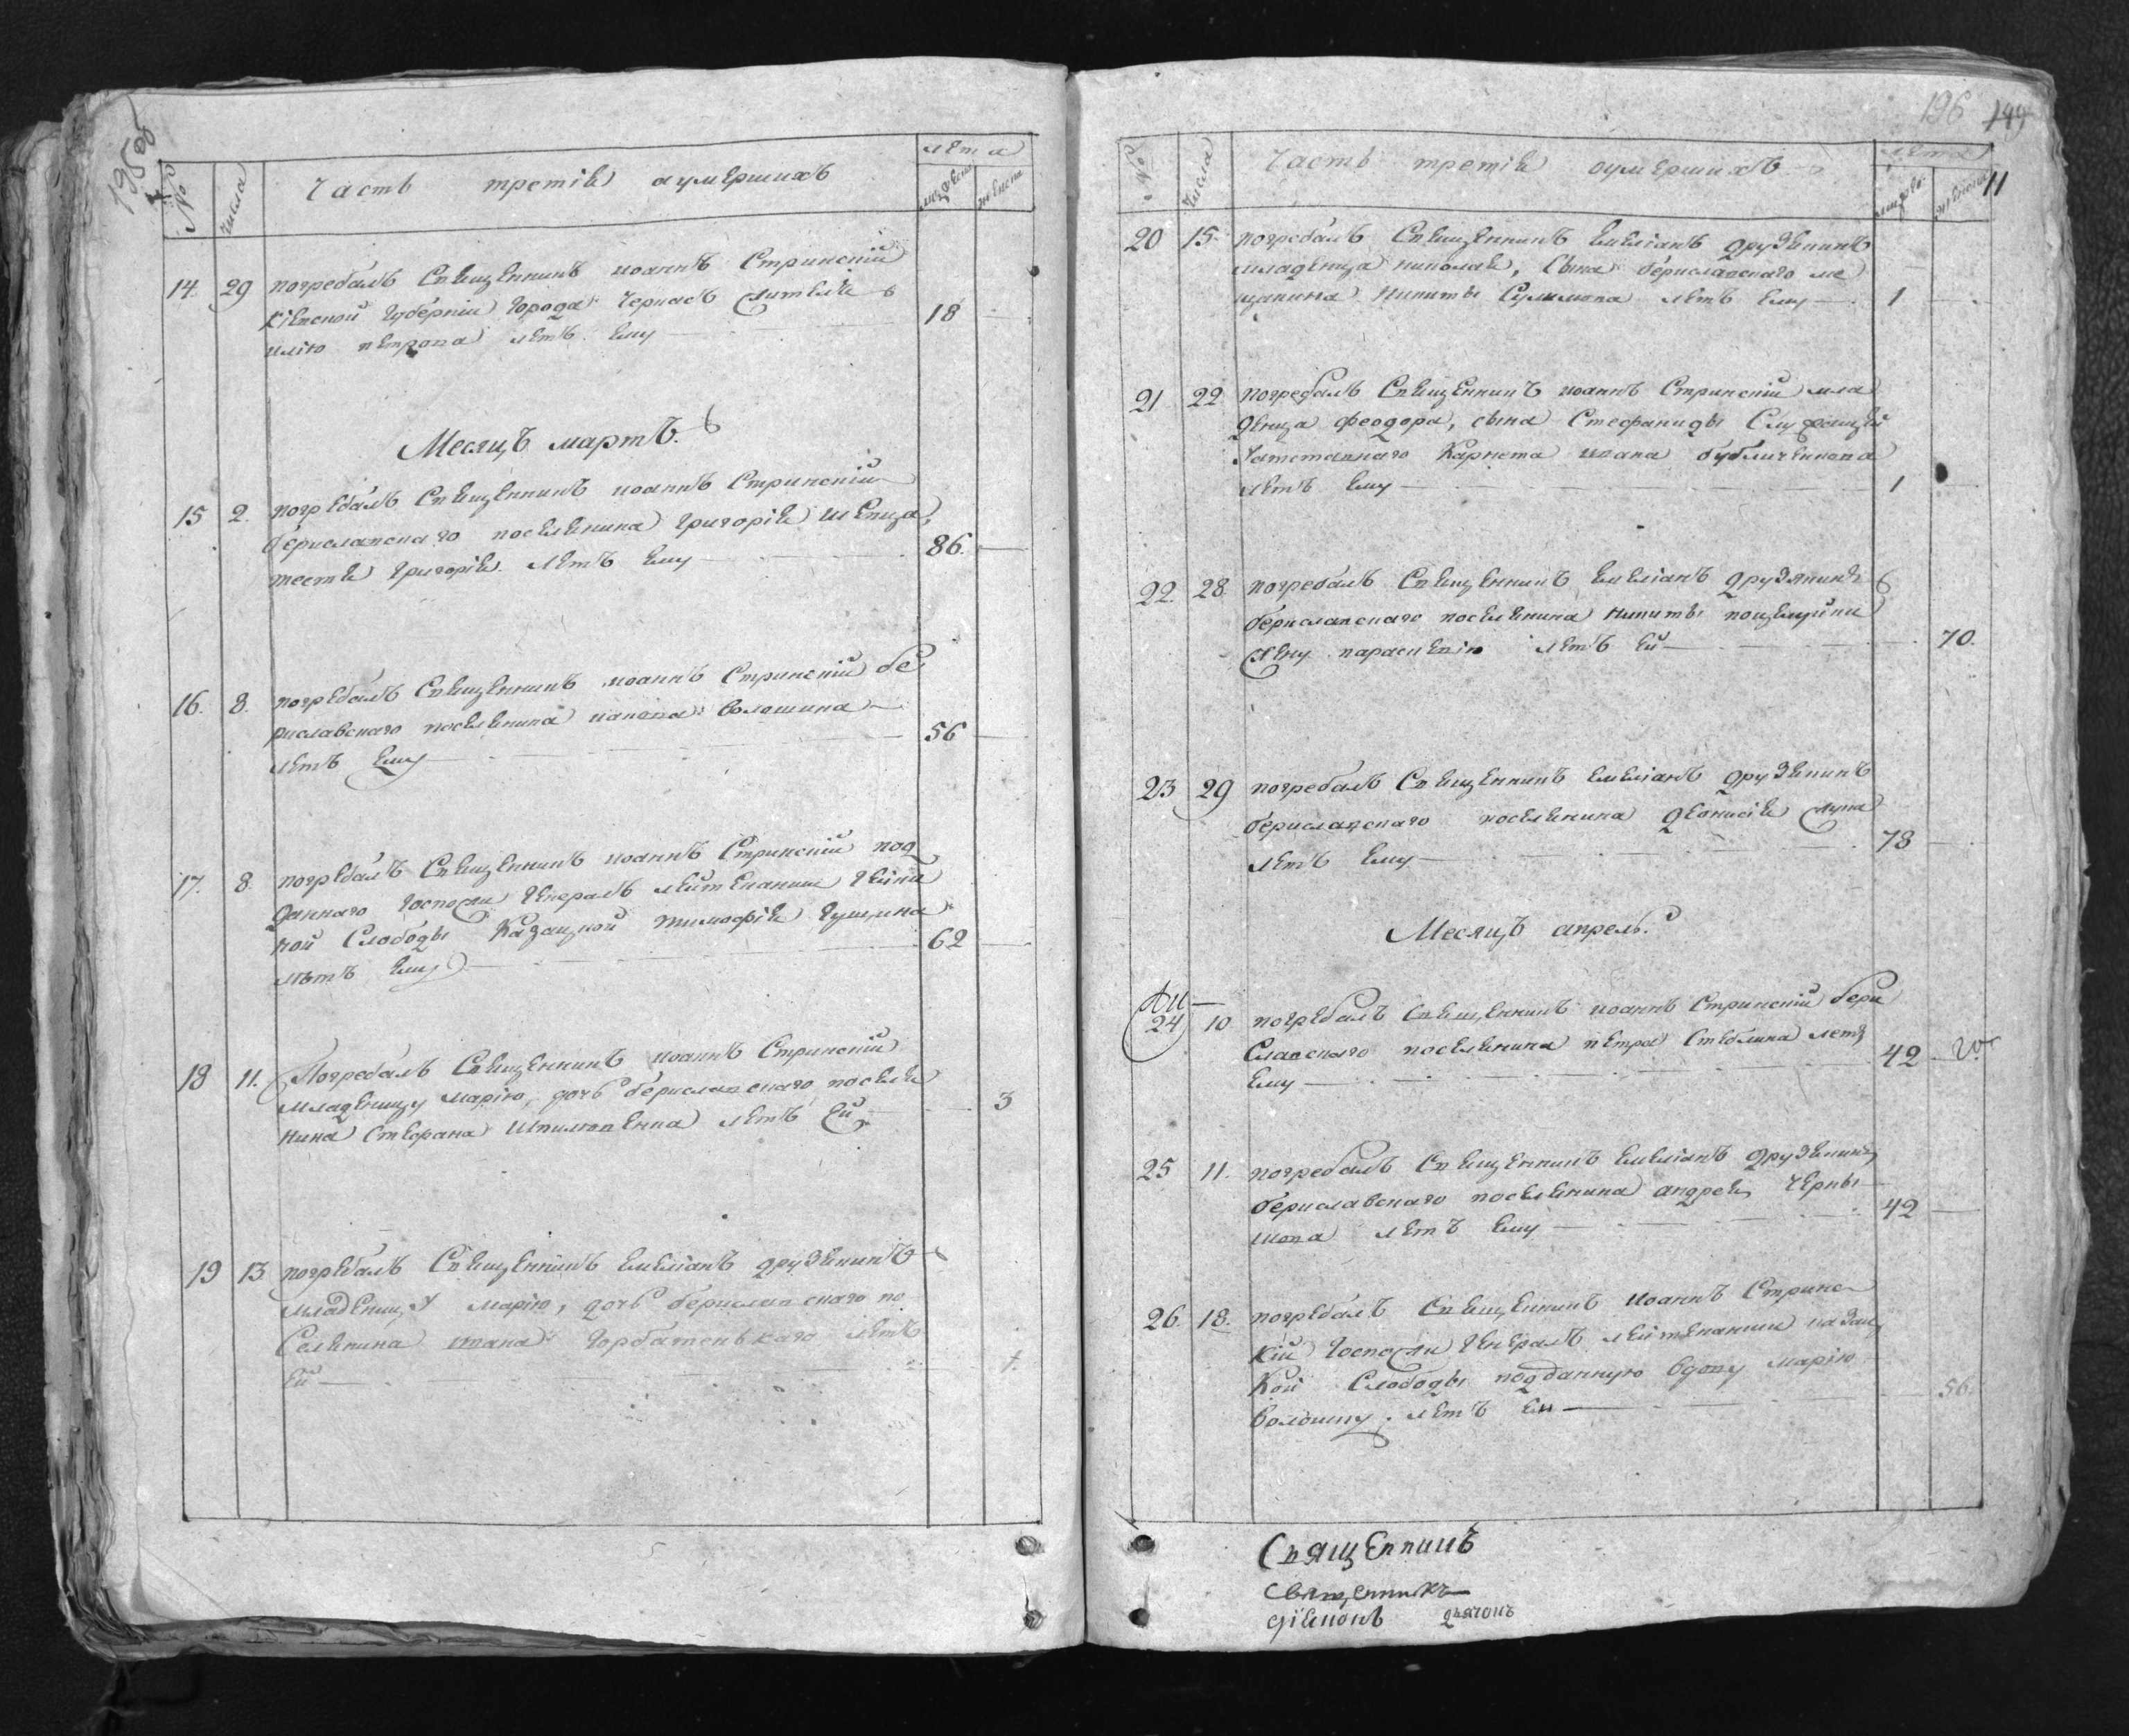 195об
№ числа Часть третія оумершихъ лета мужеска женска
14. 29 погребалъ Священникъ иоаннъ Стринскій
Кіевской губерніи города Черкасъ жителя
илію петрова летъ ему 18
Месяцъ мартъ.
15 2. погребалъ Священникъ иоаннъ Стринскій
бериславскаго поселянина григорія
григорія летъ ему 86.
16. 8. погребалъ Священникъ иоаннъ Стринскій бе
риславскаго поселянина волошина
летъ ему 56
17. 8. погребалъ Священникъ иоаннъ Стринскій под
даннаго госпожи генералъ лейтенанши
кой Слободы Казацкой тимофея гущина
летъ ему 62
18 11. Погребалъ Священникъ иоаннъ Стринскій
младеницу марію, дочь бериславскаго поселя
нина Стефана летъ Ей 3
19 13 погребалъ Священникъ емеліанъ друзякинъ
младеницу марію, дочь бериславскаго по
Селянина ивана горбатенькаго летъ
Ей 1.
196 11
№ Числа Часть третія оумершихъ лета мужеск. женска
20 15 погребалъ Священникъ емеліанъ друзякинъ
младенца николая, Сына бериславскаго ме
щанина никиты Сулимова летъ ему 1
21 22 погребалъ Священникъ иоаннъ Стринскій мла
денца феодора, сына Стефаниды Служащей
Капитана ивана
летъ ему 1
22. 28. погребалъ Священникъ емеліанъ друзякинъ
бериславскаго поселянина никиты поцелуйки
жену параскевію летъ ей 70.
23 29 погребалъ Священникъ емеліанъ друзякинъ
бериславскаго поселянина деонисія жука
летъ ему 78
Месяцъ апрель.
24 10 погребалъ Священникъ иоаннъ Стринскій бери
Славскаго поселянина петра Стеблина летъ
ему 42
25 11. погребалъ Священникъ емеліанъ друзякинъ
бериславскаго поселянина андрея черны
шова летъ ему 42
26. 18. погребалъ Священникъ иоаннъ Стринс
кій госпожи генералъ лейтенанши казац
кой Слободы подданную вдову марію
волошку. летъ ей 56.
Священникъ
Священникъ
діяконъ діаконъ